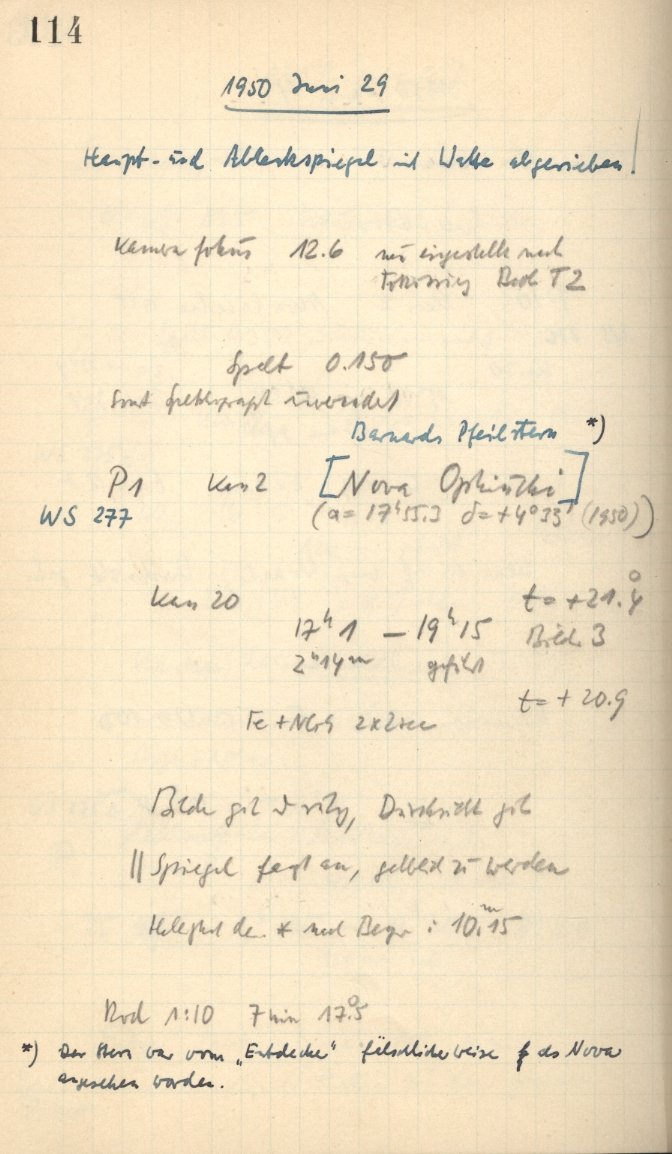 114
1950 Juni 29
Haupt- und Ablenkspiegel mit Watte abgerieben!
Kamerafokus 12.6 neu eingestellt nach
Fokussierg Bech T2
Spalt 0.150
Sonst Spektrograph unverändert
Barnards Pfeilstern *)
P1 Kas 2 [Nova Ophiuchi]
WS 277 (α = 17ʰ55.3 δ = +4°33' (1950))
Kas 20 t = +21.°4
17ʰ1 — 19ʰ15 Bild 3
2ʰ14ᵐ geführt
t = +20.9
Fe + 2x2sec
Bilder gut + ruhig, Durchsicht gut
|| Spiegel fängt an, gelblich zu werden
Helligkeit des * nach : 10.ᵐ15
Rod 1:10 7 min 17.°5
*) Der Stern war vom „Entdecker" fälschlicherweise als Nova
angesehen worden.